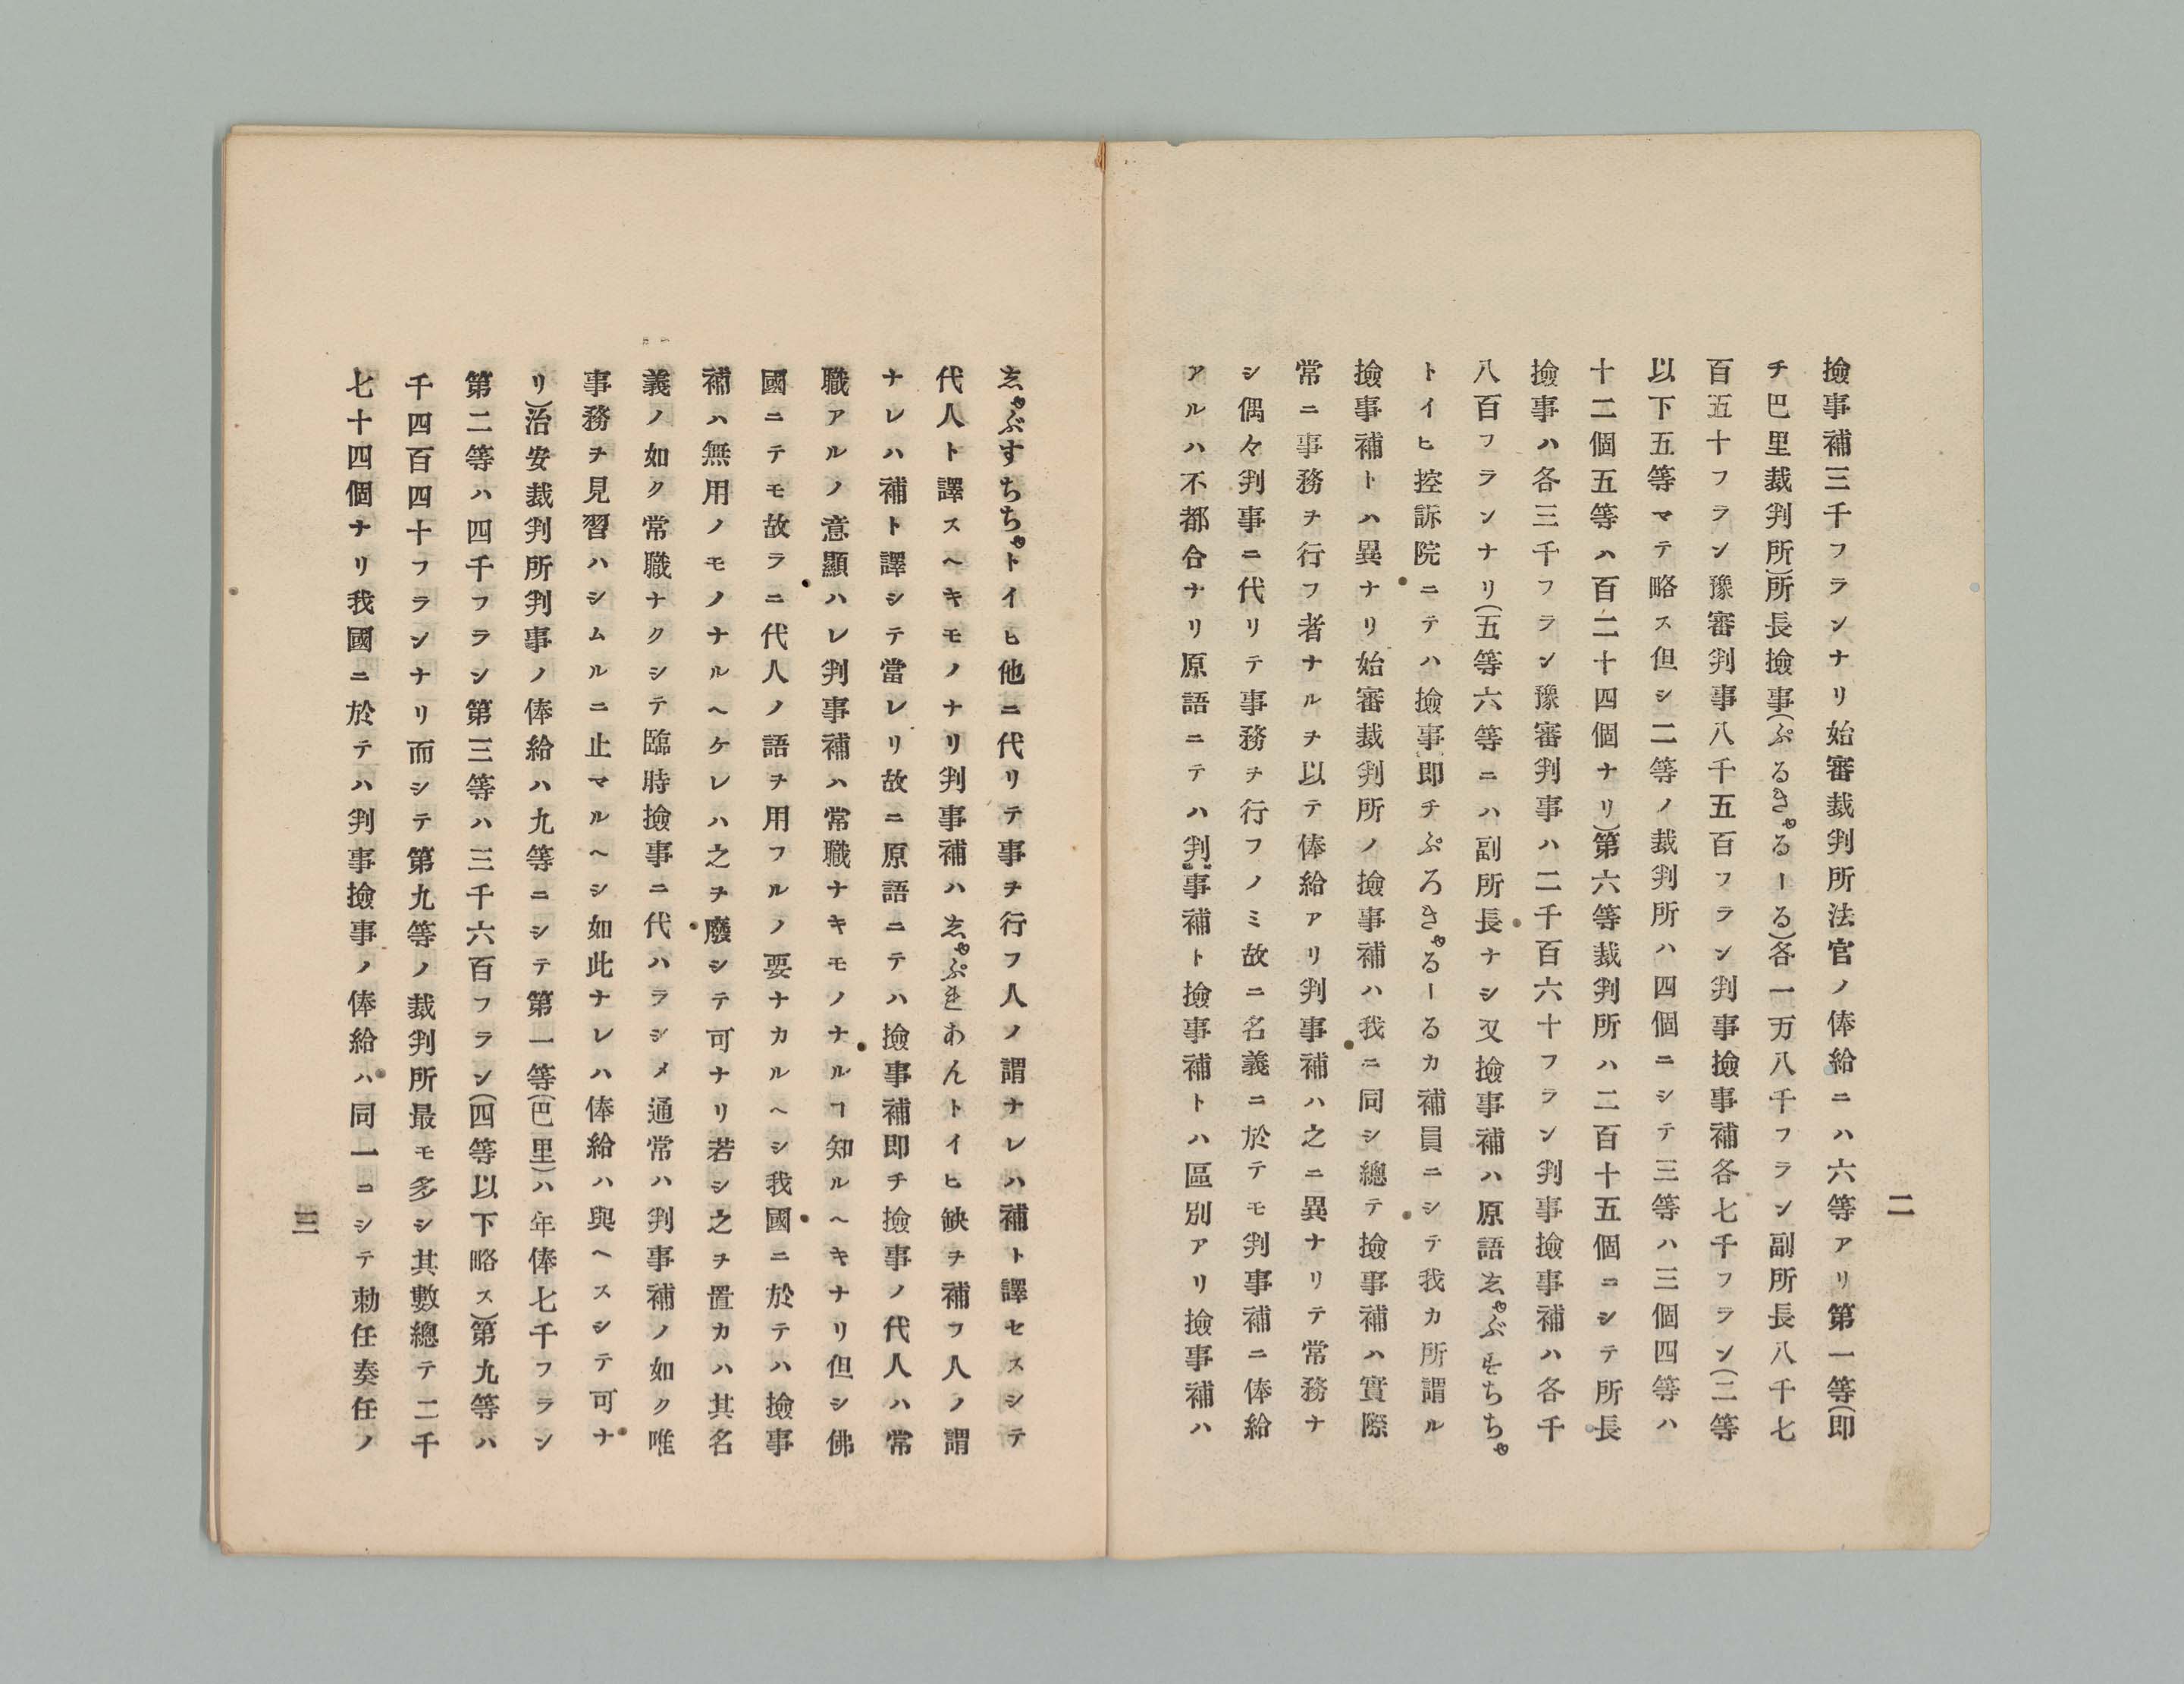 二
撿事補三千フランナリ始審裁判所法官ノ俸給ニハ六等アリ第一等(即
チ巴里裁判所)所長撿事(ぷるきゃるーる)各一万八千フラン副所長八千七
百五十フラン豫審判事八千五百フラン判事撿事補各七千フラン(二等
以下五等マテ略ス但シ二等ノ裁判所ハ四個ニシテ三等ハ三個四等ハ
十二個五等ハ百二十四個ナリ)第六等裁判所ハ二百十五個ニシテ所長
撿事ハ各三千フラン豫審判事ハ二千百六十フラン判事撿事補ハ各千
八百フランナリ(五等六等ニハ副所長ナシ又撿事補ハ原語ゑゃぶすちちゃ
トイヒ控訴院ニテハ撿事即チぷろきゃるーるカ補員ニシテ我カ所謂ル
撿事補トハ異ナリ始審裁判所ノ撿事補ハ我ニ同シ總テ撿事補ハ實際
常ニ事務ヲ行フ者ナルヲ以テ俸給アリ判事補ハ之ニ異ナリテ常務ナ
シ偶々判事ニ代リテ事務ヲ行フノミ故ニ名義ニ於テモ判事補ニ俸給
アルハ不都合ナリ原語ニテハ判事補ト撿事補トハ區別アリ撿事補ハ
ゑゃぶすちちゃトイヒ他ニ代リテ事ヲ行フ人ノ謂ナレハ補ト譯セスシテ
代人ト譯スヘキモノナリ判事補ハゑゃぷれあんトイヒ缺ヲ補フ人ノ謂
ナレハ補ト譯シテ當レリ故ニ原語ニテハ撿事補即チ撿事ノ代人ハ常
職アルノ意顯ハレ判事補ハ常職ナキモノナルヿ知ルヘキナリ但シ佛
國ニテモ故ラニ代人ノ語ヲ用フルノ要ナカルヘシ我國ニ於テハ撿事
補ハ無用ノモノナルヘケレハ之ヲ廢シテ可ナリ若シ之ヲ置カハ其名
義ノ如ク常職ナクシテ臨時撿事ニ代ハラシメ通常ハ判事補ノ如ク唯
事務ヲ見習ハシムルニ止マルヘシ如此ナレハ俸給ハ與ヘスシテ可ナ
リ)治安裁判所判事ノ俸給ハ九等ニシテ第一等(巴里)ハ年俸七千フラン
第二等ハ四千フラン第三等ハ三千六百フラン(四等以下略ス)第九等ハ
千四百四十フランナリ而シテ第九等ノ裁判所最モ多シ其數總テ二千
七十四個ナリ我國ニ於テハ判事撿事ノ俸給ハ同一ニシテ勅任奏任ノ
三